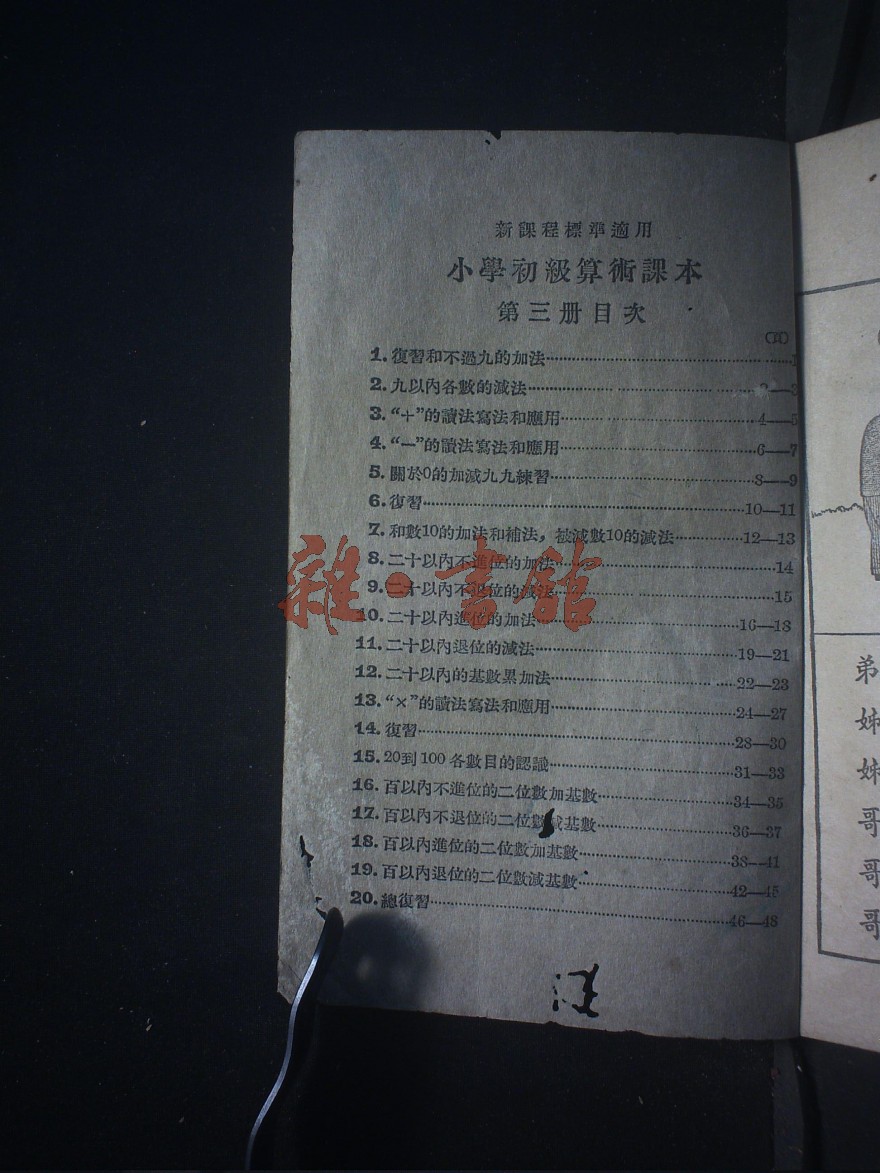 新課程標準適用
小學初級算術課本
第三册目次
1.復習和不過九的加法……1
2.九以內各數的減法……2—3
3.“＋”的讀法寫法和應用……4—5
4.“—”的讀法寫法和應用……6—7
5.關於0的加減九九練習……8—9
6.復習……10—11
7.和數10的加法和補法，被減數10的減法……12—13
8.二十以內不進位的加法……14
9.二十以內不退位的減法……15
10.二十以內進位的加法……16—18
11.二十以內退位的減法……19—21
12.二十以內的基數累加法……22—23
13.“×”的讀法寫法和應用……24—27
14.復習……28—30
15.20到100各數目的認識……31—33
16.百以內不進位的二位數加基數……34—35
17.百以內不退位的二位數減基數……36—37
18.百以內進位的二位數加基數……38—41
19.百以內退位的二位數減基數……42—45
20.總復習……46—48
雜·書館
弟
姊
姊
哥
哥
哥